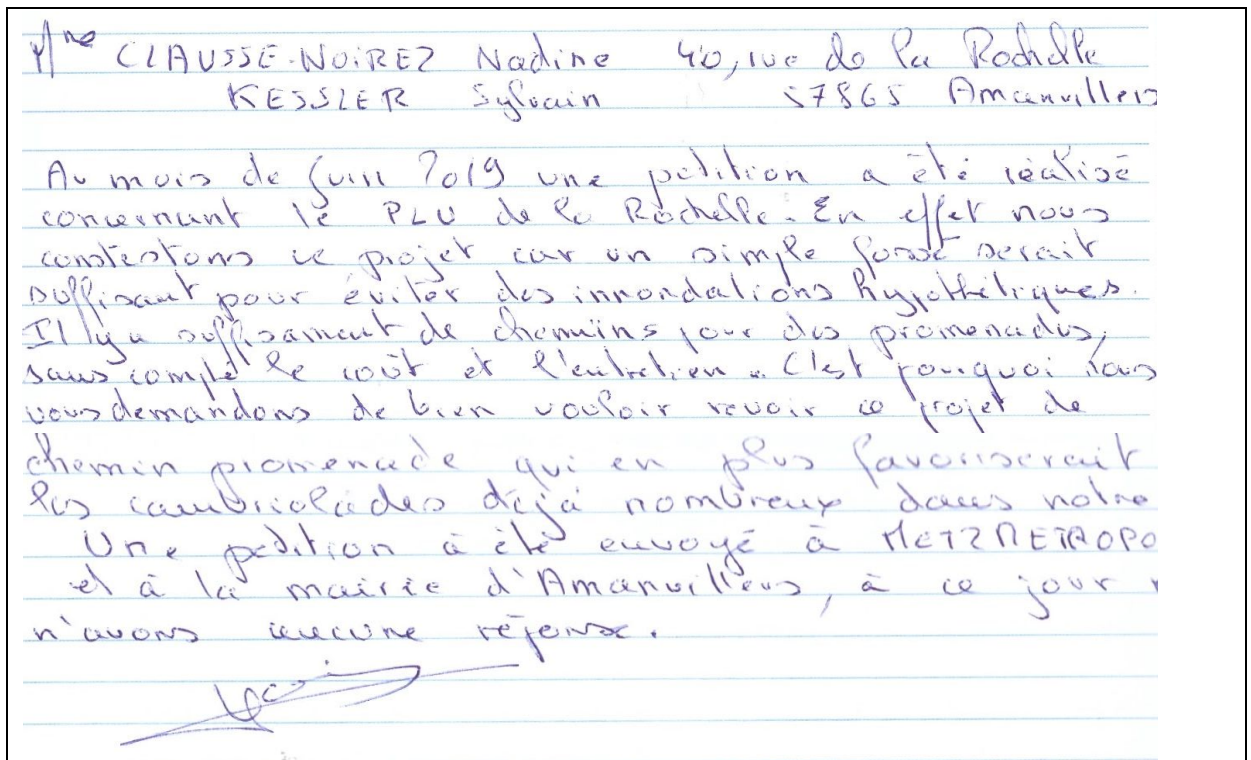 Mme CLAUSSE-NOIREZ Nadine 40, rue de la Rochelle
KESSLER Sylvain 57865 Amanvillers
Au mois de juin 2019 une petition a été réalisé
concernant le PLU de la Rochelle. En effet nous
contestons ce projet car un simple fossé serait
suffisant pour éviter des innondations hypothétiques.
Il y a suffisament de chemins pour des promenades,
sans compté le coût et l'entretien. C'est pourquoi nous
vous demandons de bien vouloir revoir ce projet de
chemin promenade qui en plus favoriserait
les cambriolades déjà nombreux dans notre
Une petition à été envoyé à METZ METROPO
et à la mairie d'Amanvillers, à ce jour
n'avons aucune réponse.